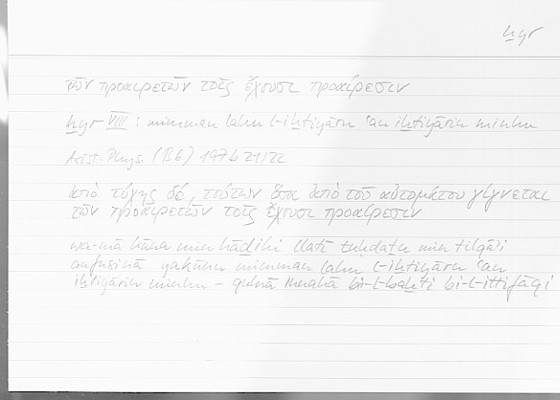 ḫyr
τῶν προαιρετῶν τοῖς ἔχουσι προαίρεσιν
ḫyr VIII : mimman lahu l-iḫtiyāru ʿan iḫtiyārin minhu
Arist. Phys. (B6) 197 b 21/22
ἀπὸ τύχης δέ, τούτων ὅσα ἀπὸ τοῦ αὐτομάτου γίγνεται
τῶν προαιρετῶν τοῖς ἔχουσι προαίρεσιν
wa-mā kāna min hāḏihi llatī tuḥdaṯu min tilqāʾi
anfusihā yakūnu mimman lahu l-iḫtiyāru ʿan
iḫtiyārin minhu – qulnā innahā bi-l-baḫti bi-l-ittifāqi